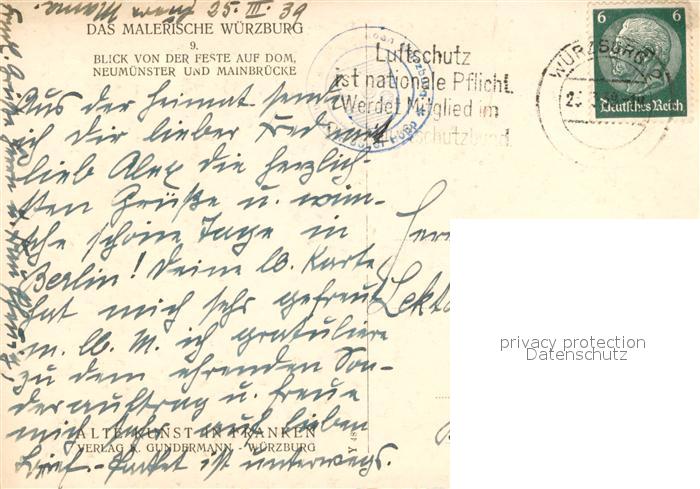 Mama. 25. III. 39
DAS MALERISCHE WÜRZBURG
9.
BLICK VON DER FESTE AUF DOM,
NEUMÜNSTER UND MAINBRÜCKE
Luftschutz
ist nationale Pflicht.
Werdet Mitglied im
Luftschutzbund.
WÜRZBURG 2
6 6
Deutsches Reich
Aus der Heimat sende
ich dir lieber Fred und
lieb Alex die herzlich-
sten Grüße u. wün-
sche schöne Tage in
Berlin! Deine lb. Karte
hat mich sehr gefreut
m. lb. M. ich gratuliere
zu dem ehrenden Son-
derauftrag u. freue
mich sehr auf lieben
Brief - Paket ist unterwegs.
Lekto
ALTE KUNST IN FRANKEN
VERLAG K. GUNDERMANN - WÜRZBURG
privacy protection
Datenschutz